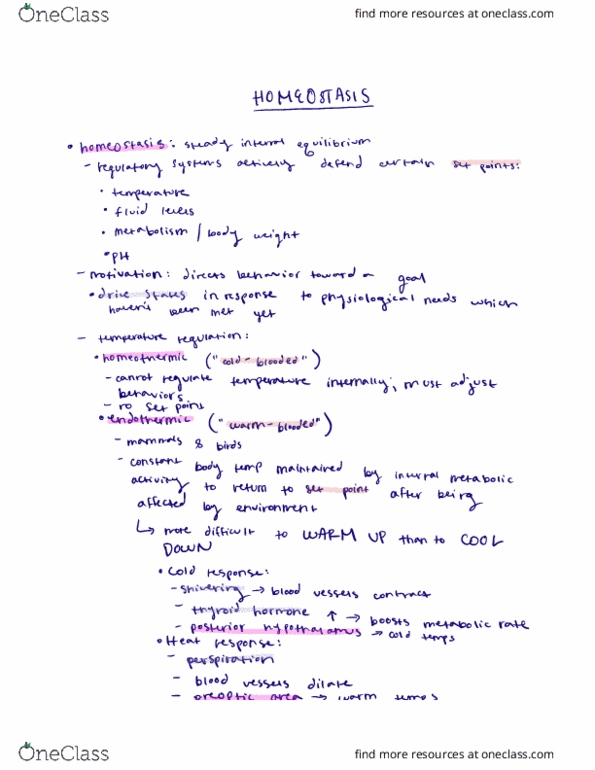 OneClass
find more resources at oneclass.com
HOMEOSTASIS
• homeostasis: steady internal equilibrium
- regulatory systems actively defend certain set points:
• temperature
• fluid levels
• metabolism / body weight
• pH
- motivation: directs behavior toward a goal
• drive states in response to physiological needs which
haven't been met yet
- temperature regulation:
• homeothermic ("cold-blooded")
- cannot regulate temperature internally; must adjust
behaviors
- no set point
• endothermic ("warm-blooded")
- mammals & birds
- constant body temp maintained by internal metabolic
activity to return to set point after being
affected by environment
↳ more difficult to WARM UP than to COOL
DOWN
• Cold response:
- shivering → blood vessels contract
- thyroid hormone ↑ → boosts metabolic rate
- posterior hypothalamus → cold temps
• Heat response:
- perspiration
- blood vessels dilate
- oreoptic area → warm temps
OneClass
find more resources at oneclass.com